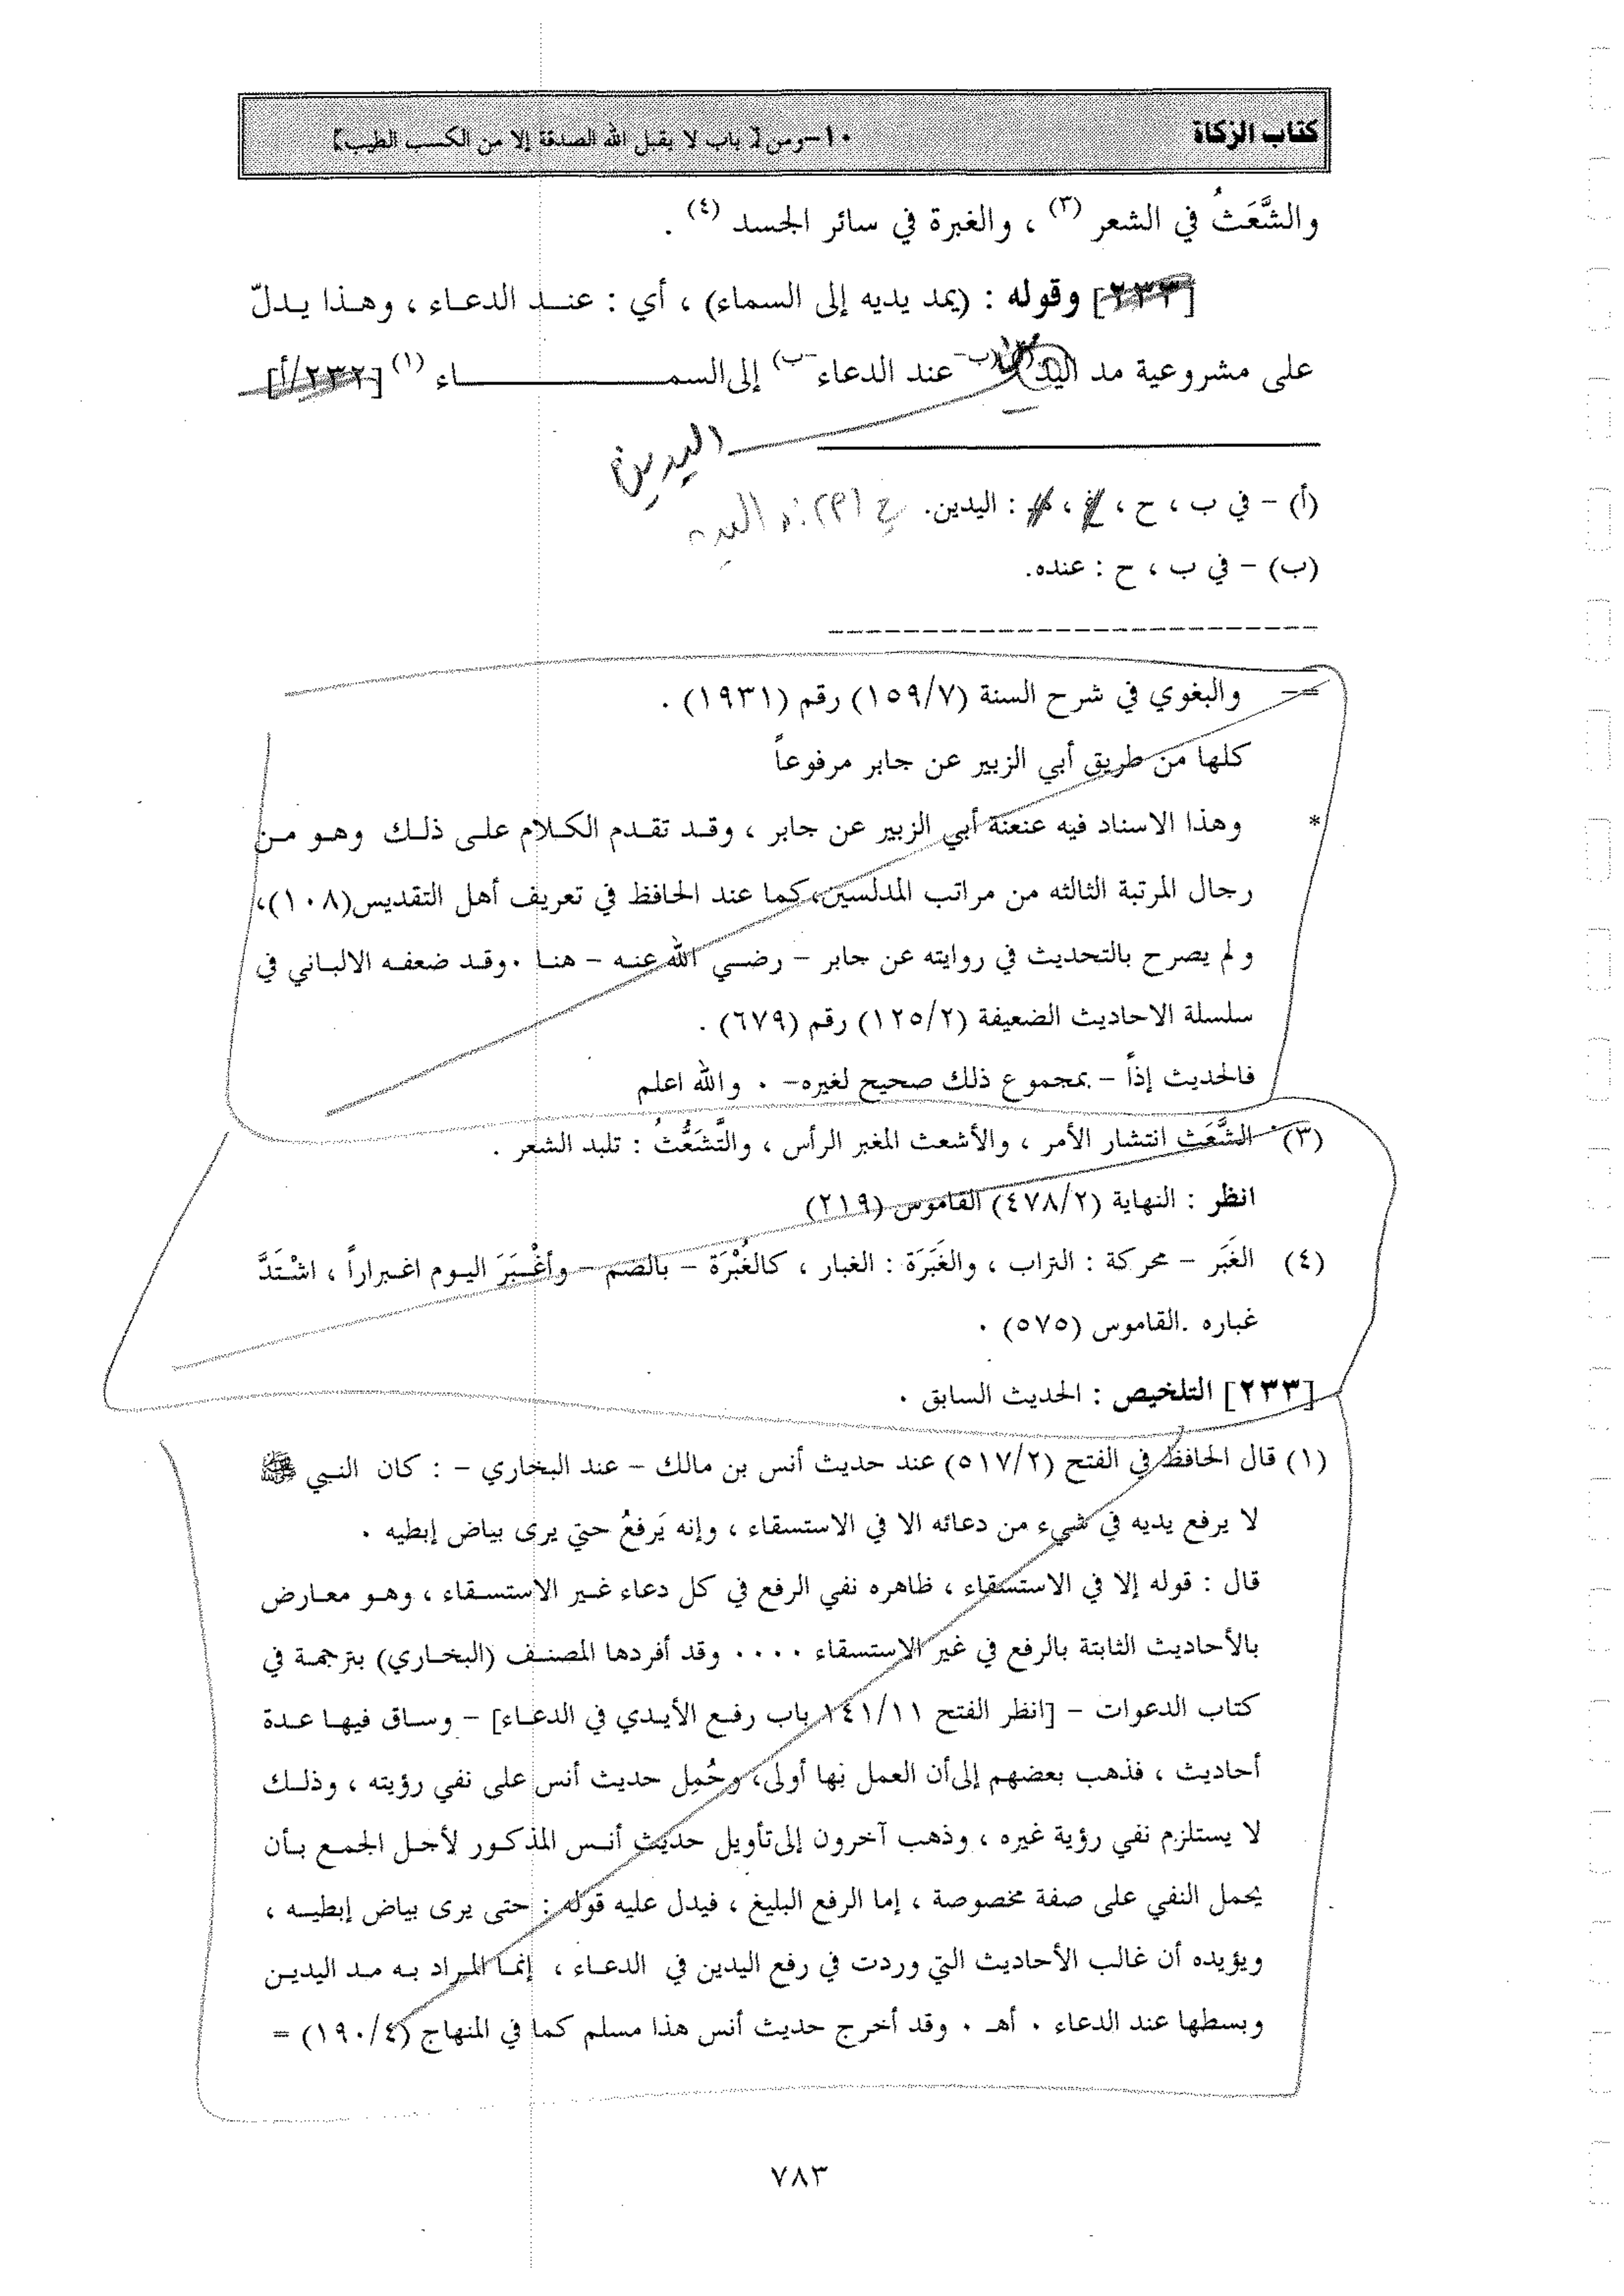 كتاب الزكاة ١٠-ومن [ باب لا يقبل الله الصدقة إلا من الكسب الطيب]
والشَّعَثُ في الشعر (٣) ، والغبرة في سائر الجسد (٤) .
[٢٣٣] وقوله : (يمد يديه إلى السماء) ، أي : عنـد الدعـاء ، وهـذا يـدلّ
على مشروعية مد اليد (ب- عند الدعاء -ب) إلى السمـــــــــاء (١) [٢٣٢/أ]
اليدين
(أ) - في ب ، ح ، : اليدين.
(ب) - في ب ، ح : عنده.
= والبغوي في شرح السنة (١٥٩/٧) رقم (١٩٣١) .
كلها من طريق أبي الزبير عن جابر مرفوعاً
* وهذا الاسناد فيه عنعنة أبي الزبير عن جابر ، وقـد تقـدم الكـلام علـى ذلـك وهـو مـن
رجال المرتبة الثالثه من مراتب المدلسين، كما عند الحافظ في تعريف أهل التقديس(١٠٨)،
ولم يصرح بالتحديث في روايته عن جابر - رضـي الله عنـه - هنـا . وقـد ضعفـه الالبـاني في
سلسلة الاحاديث الضعيفة (١٢٥/٢) رقم (٦٧٩) .
فالحديث إذاً - بمجموع ذلك صحيح لغيره- . والله اعلم
(٣) الشَّعَث انتشار الأمر ، والأشعث المغبر الرأس ، والتَّشَعُّثُ : تلبد الشعر .
انظر : النهاية (٤٧٨/٢) القاموس (٢١٩)
(٤) الغَبَر - محركة : التراب ، والغَبَرَة : الغبار ، كالغُبْرَة - بالضم - وأغْـبَرَ اليـوم اغـبراراً ، اشْـتَدَّ
غباره .القاموس (٥٧٥) .
[٢٣٣] التلخيص : الحديث السابق .
(١) قال الحافظ في الفتح (٥١٧/٢) عند حديث أنس بن مالك - عند البخاري - : كان النـبي ﷺ
لا يرفع يديه في شيء من دعائه الا في الاستسقاء ، وإنه يَرفعُ حتي يرى بياض إبطيه .
قال : قوله إلا في الاستسقاء ، ظاهره نفي الرفع في كل دعاء غـير الاستسـقاء ، وهـو معـارض
بالأحاديث الثابتة بالرفع في غير الاستسقاء .... وقد أفردها المصنـف (البخـاري) بترجمـة في
كتاب الدعوات - [انظر الفتح ١٤١/١١ باب رفـع الأيـدي في الدعـاء] - وسـاق فيهـا عـدة
أحاديث ، فذهب بعضهم إلى أن العمل بها أولى، وحُمِل حديث أنس على نفي رؤيته ، وذلـك
لا يستلزم نفي رؤية غيره ، وذهب آخرون إلى تأويل حديث أنـس المذكـور لأجـل الجمـع بـأن
يحمل النفي على صفة مخصوصة ، إما الرفع البليغ ، فيدل عليه قوله : حتى يرى بياض إبطيـه ،
ويؤيده أن غالب الأحاديث التي وردت في رفع اليدين في الدعـاء ، إنمـا المـراد بـه مـد اليديـن
وبسطها عند الدعاء . أهـ . وقد أخرج حديث أنس هذا مسلم كما في المنهاج (١٩٠/٤) =
٧٨٣